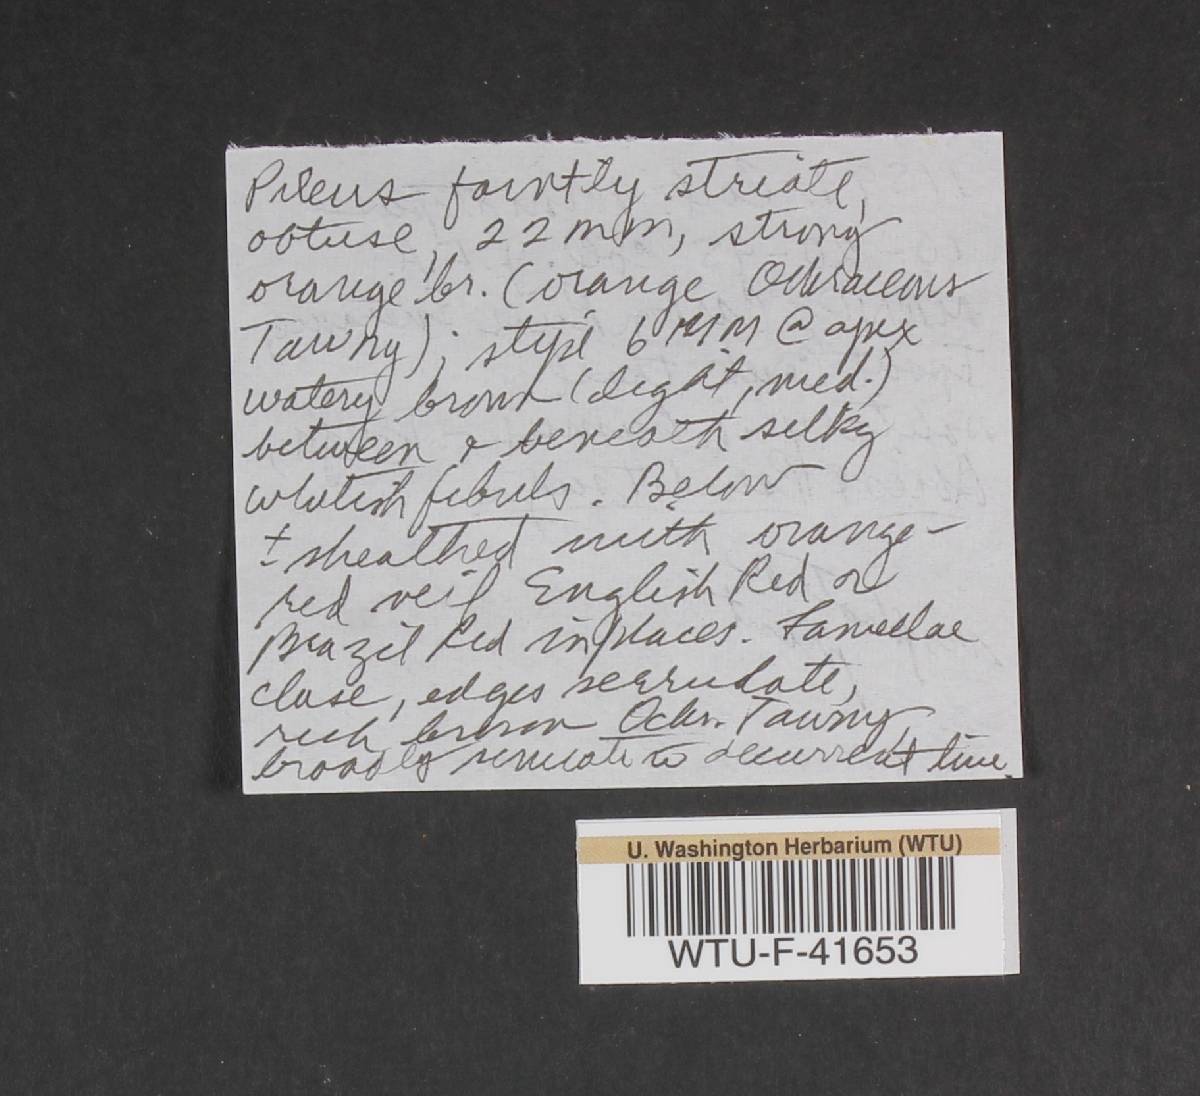 Pileus faintly striate,
obtuse, 22 mm, strong
orange br. (orange Ochraceous
Tawny); stipe 6 mm @ apex
watery brown (light, med.)
between & beneath silky
whitish fibrils. Below
± sheathed with orange-
red veil English Red or
Brazil Red in places. Lamellae
close, edges serrulate,
rich brown Ochr. Tawny,
broadly sinuate w decurrent line
U. Washington Herbarium (WTU)
WTU-F-41653